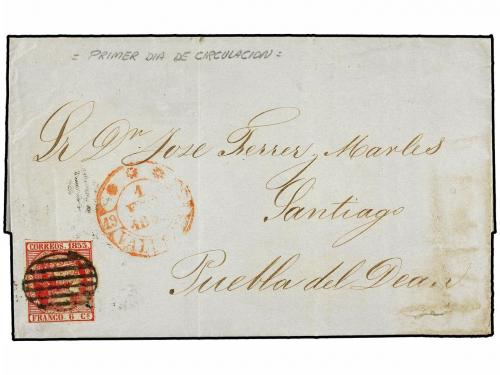 = PRIMER DIA DE CIRCULACION =
Sr Dn Jose Ferrer Marles
Santiago
Puebla del Dean
1
CORREOS. 1853
FRANCO 6 Cs